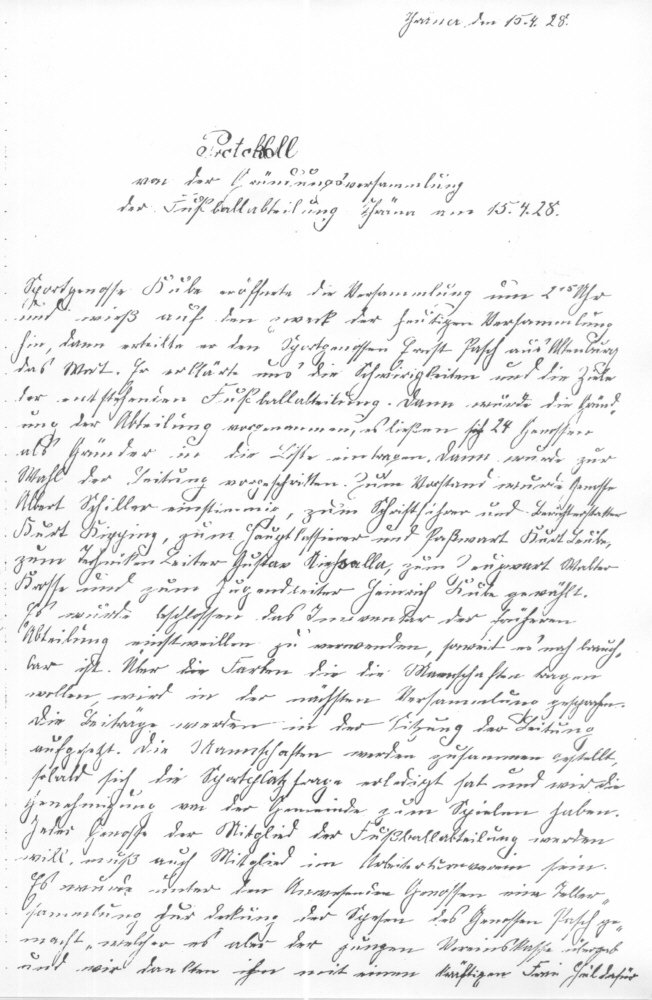 Thräna, den 15.4.28.
Protokoll
von der Gründungsversammlung
der Fußballabteilung Thräna am 15.4.28.
Sportgenosse Kube eröffnete die Versammlung um 2 Uhr
und wieß auf den zweck der heutigen Versammlung
hin, dann erteilte er den Sportgenossen Ernst Pasch aus Altenburg
das Wort. Er erklärte uns die Schwirigkeiten und die Ziele
der entstehenden Fußballabteilung. Dann wurde die Gründ-
ung der Abteilung vorgenommen, es ließen sich 24 Genossen
als Gründer in die Liste eintragen. Dann wurde zur
Wahl der Leitung vorgeschritten. Zum Vorstand wurde Genosse
Albert Schiller einstimmig, zum Schriftführer und Berichterstatter
Kurt Kipping, zum Hauptkassierer und Paßwart Kurt
zum Techniken Leiter Gustav zum Zeugwart Walter
Krosse und zum Jugendleiter Heinrich Kube gewählt.
Es wurde beschlossen das Inventar der früheren
Abteilung einstweillen zu verwenden, soweit es noch brauch-
bar ist. Über die Farben die die Mannschaften tragen
wollen wird in der nächsten Versammlung gesprochen.
Die Beiträge werden in der Sitzung der Leitung
aufgesetzt. Die Mannschaften werden zusammen gestellt,
sobald sich die Sportplatzfrage erledigt hat und wir die
Genehmigung von der Gemeinde zum Spielen haben.
Jeder Genosse der Mitglied der Fußballabteilung werden
will, muß auch Mitglied im Arbeiterturnverein sein.
Es wurde unter den Anwesenden Genossen eine Teller-
sammlung zur deckung der Spesen des Genossen Pasch ge-
macht, welcher es aber der jungen Vereinskasse übergab
und wir dankten ihm mit einem kräftigen Frei Heil dafür